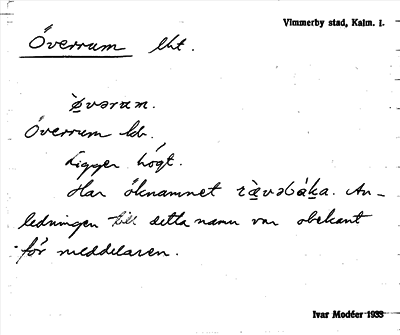 Vimmerby stad, Kalm. l.
Överrum lht.
Överrum lht.
Ligger högt.
Har öknamnet
ledningen till detta namn var obekant
för meddelaren.
Ivar Modéer 1933